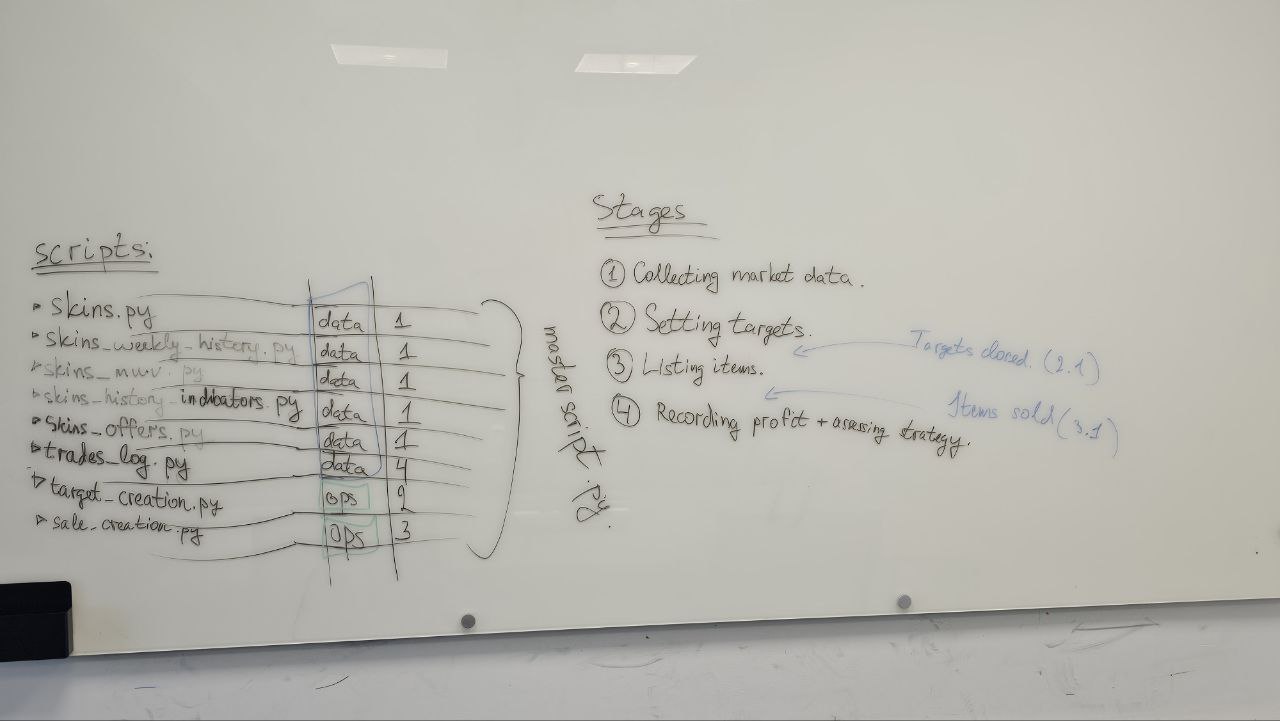 scripts:
skins.py data 1
skins_weekly_history.py data 1
skins_mwv.py data 1
skins_history_indicators.py data 1
skins_offers.py data 1
trades_log.py data 4
target_creation.py ops 2
sale_creation.py ops 3
master script.py.
Stages
1 Collecting market data.
2 Setting targets.
Targets closed. (2.1)
3 Listing items.
Items sold (3.1)
4 Recording profit + assessing strategy.